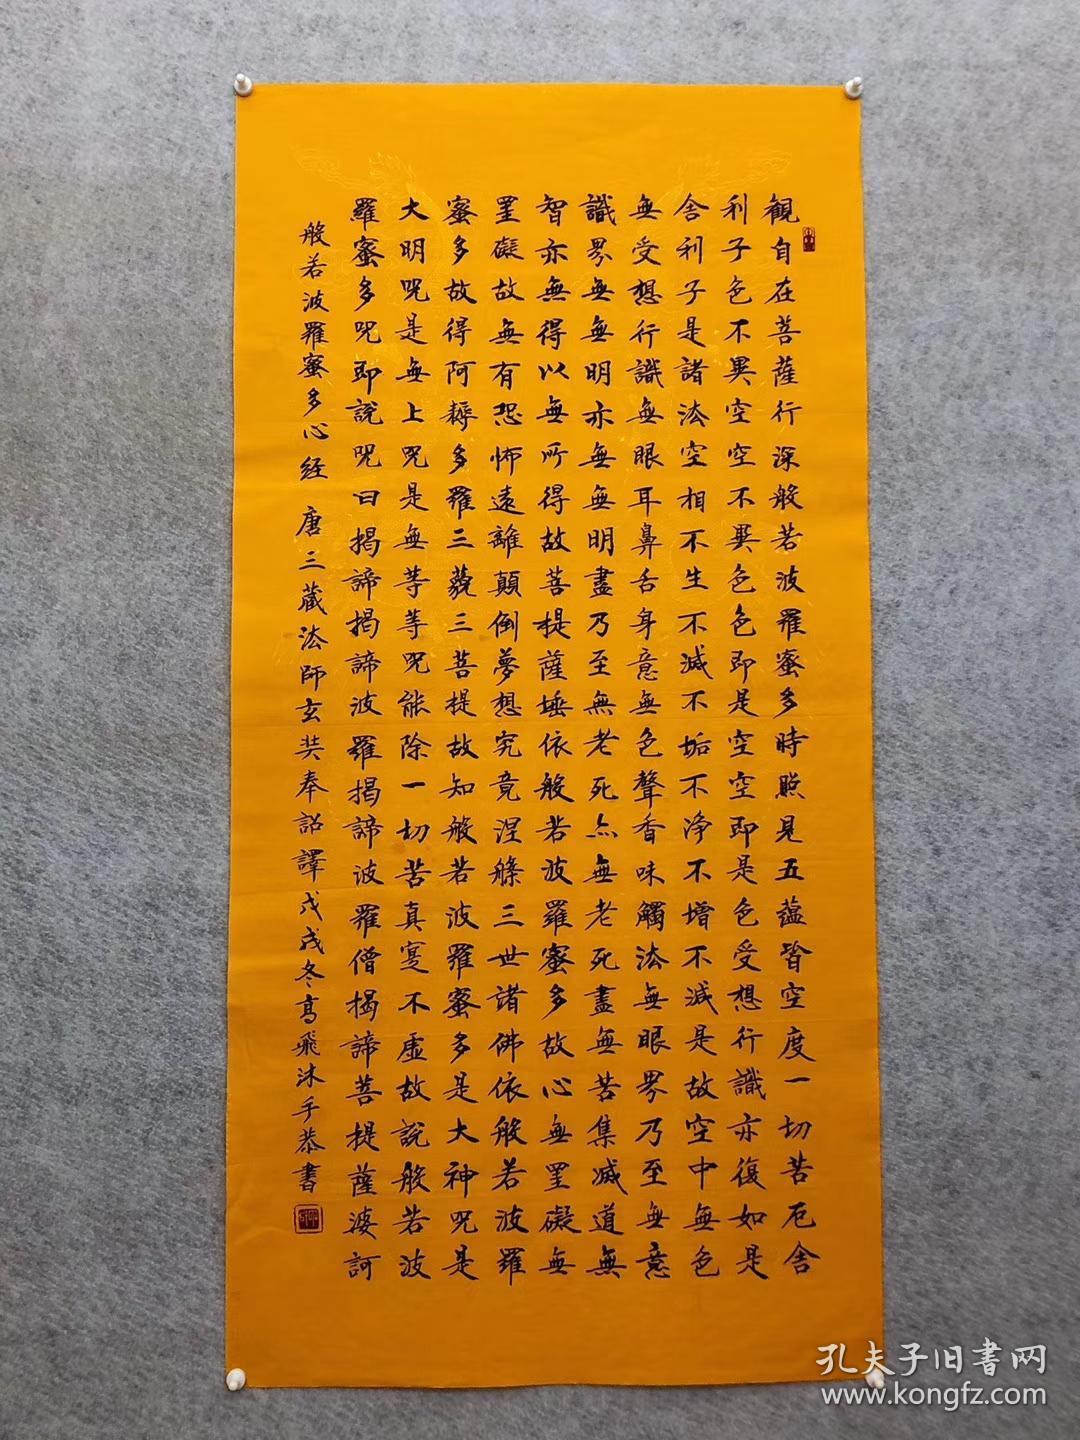 観自在菩薩行深般若波羅蜜多時照見五蘊皆空度一切苦厄舍
利子色不異空空不異色色即是空空即是色受想行識亦復如是
舎利子是諸法空相不生不滅不垢不淨不增不減是故空中無色
無受想行識無眼耳鼻舌身意無色聲香味觸法無眼界乃至無意
識界無無明亦無無明盡乃至無老死亦無老死盡無苦集滅道無
智亦無得以無所得故菩提薩埵依般若波羅蜜多故心無罣礙無
罣礙故無有恐怖遠離顛倒夢想究竟涅槃三世諸佛依般若波羅
蜜多故得阿耨多羅三藐三菩提故知般若波羅蜜多是大神咒是
大明咒是無上咒是無等等咒能除一切苦真寔不虛故說般若波
羅蜜多咒即說咒曰揭諦揭諦波羅揭諦波羅僧揭諦菩提薩婆訶
般若波羅蜜多心經 唐三藏法師玄奘奉詔譯戊戌冬高飛沐手恭書
孔夫子旧書网
www.kongfz.com